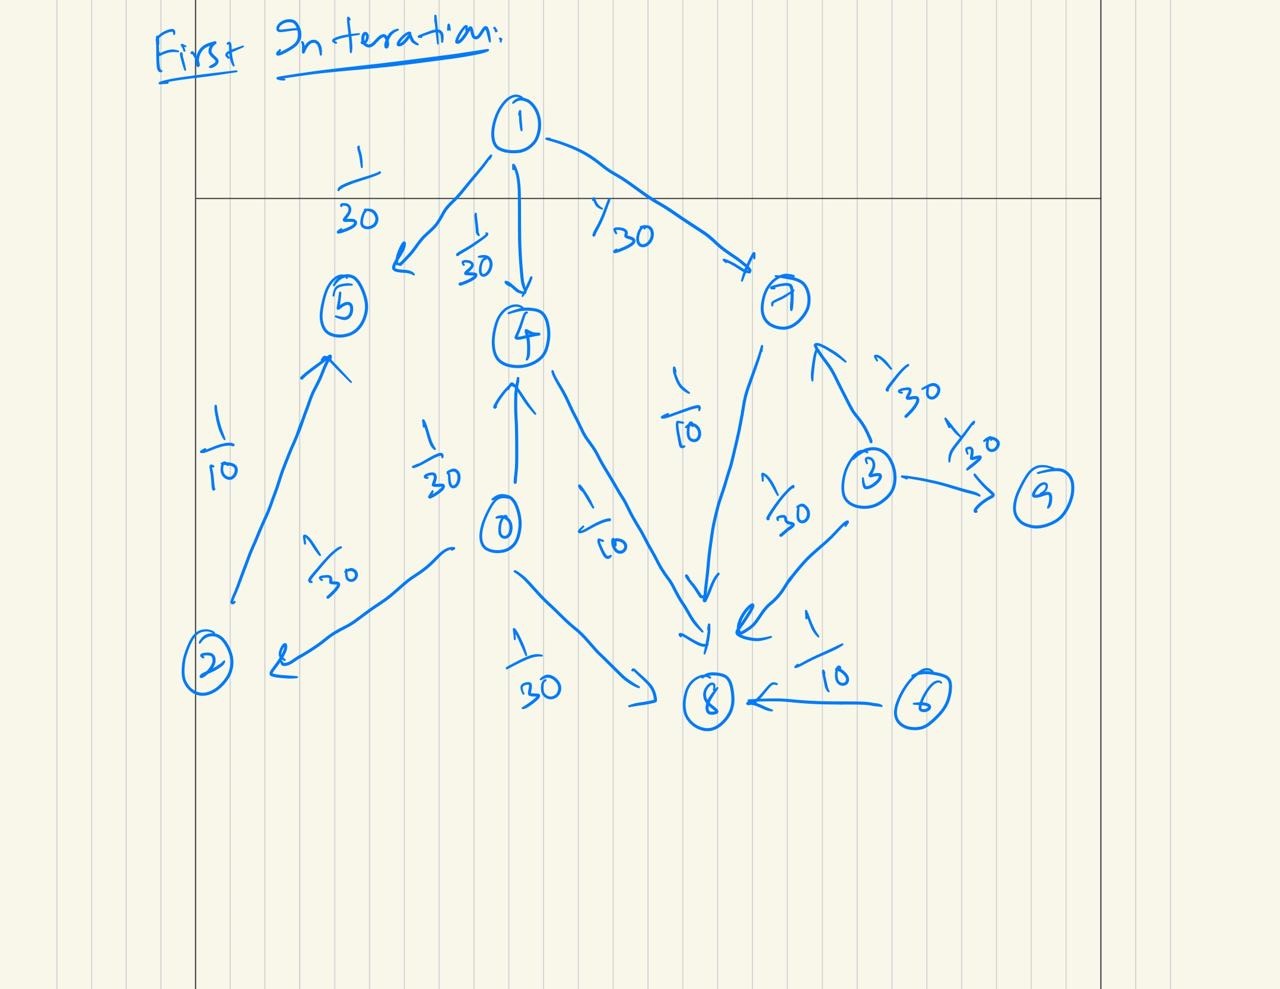 First Interation:
1
1/30
1/30
1/30
5
4
7
1/10
1/30
1/10
1/10
1/30
1/30
3
9
1/30
0
1/30
2
1/30
8
1/10
6